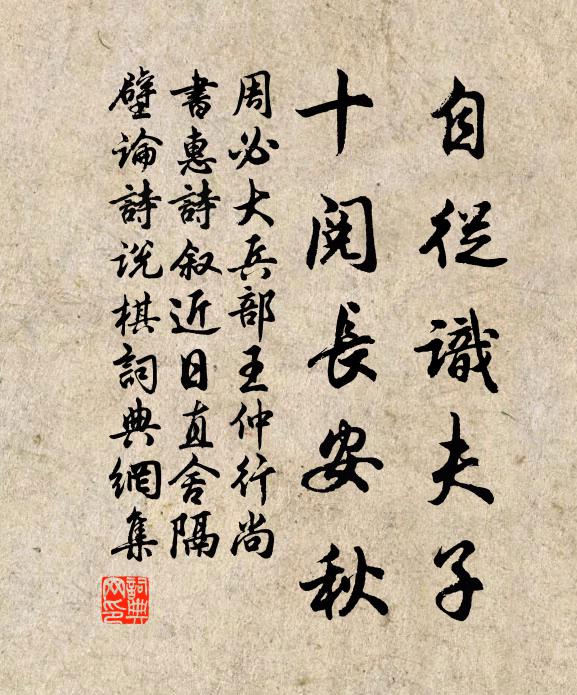 自從識夫子
十閱長安秋
周必大兵部王仲行尚
書惠詩叙近日直舍隔
壁論詩說棋詞典網集
詞典
網印